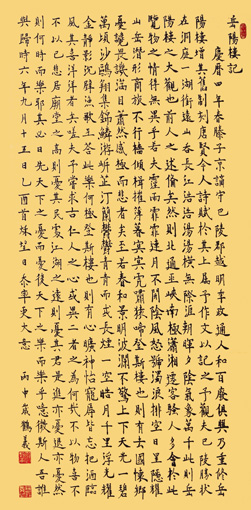 岳陽樓記
慶曆四年春滕子京謫守巴陵郡越明年政通人和百廢俱興乃重修岳
陽樓增其舊制刻唐賢今人詩賦於其上屬予作文以記之予觀夫巴陵勝狀
在洞庭一湖銜遠山吞長江浩浩湯湯橫無際涯朝暉夕陰氣象萬千此則岳
陽樓之大觀也前人之述備矣然則北通巫峽南極瀟湘遷客騷人多會於此
覽物之情得無異乎若夫霪雨霏霏連月不開陰風怒號濁浪排空日星隱耀
山岳潛形商旅不行檣傾楫摧薄暮冥冥虎嘯猿啼登斯樓也則有去國懷鄉
憂讒畏譏滿目蕭然感極而悲者矣至若春和景明波瀾不驚上下天光一碧
萬頃沙鷗翔集錦鱗游泳岸芷汀蘭郁郁青青而或長煙一空皓月千里浮光耀
金靜影沉璧漁歌互答此樂何極登斯樓也則有心曠神怡寵辱皆忘把酒臨
風其喜洋洋者矣嗟夫予嘗求古仁人之心或異二者之為何哉不以物喜
不以己悲居廟堂之高則憂其民處江湖之遠則憂其君是進亦憂退亦憂然
則何時而樂耶其必曰先天下之憂而憂後天下之樂而樂乎噫微斯人吾誰
與歸時六年九月十五日
丙申歲